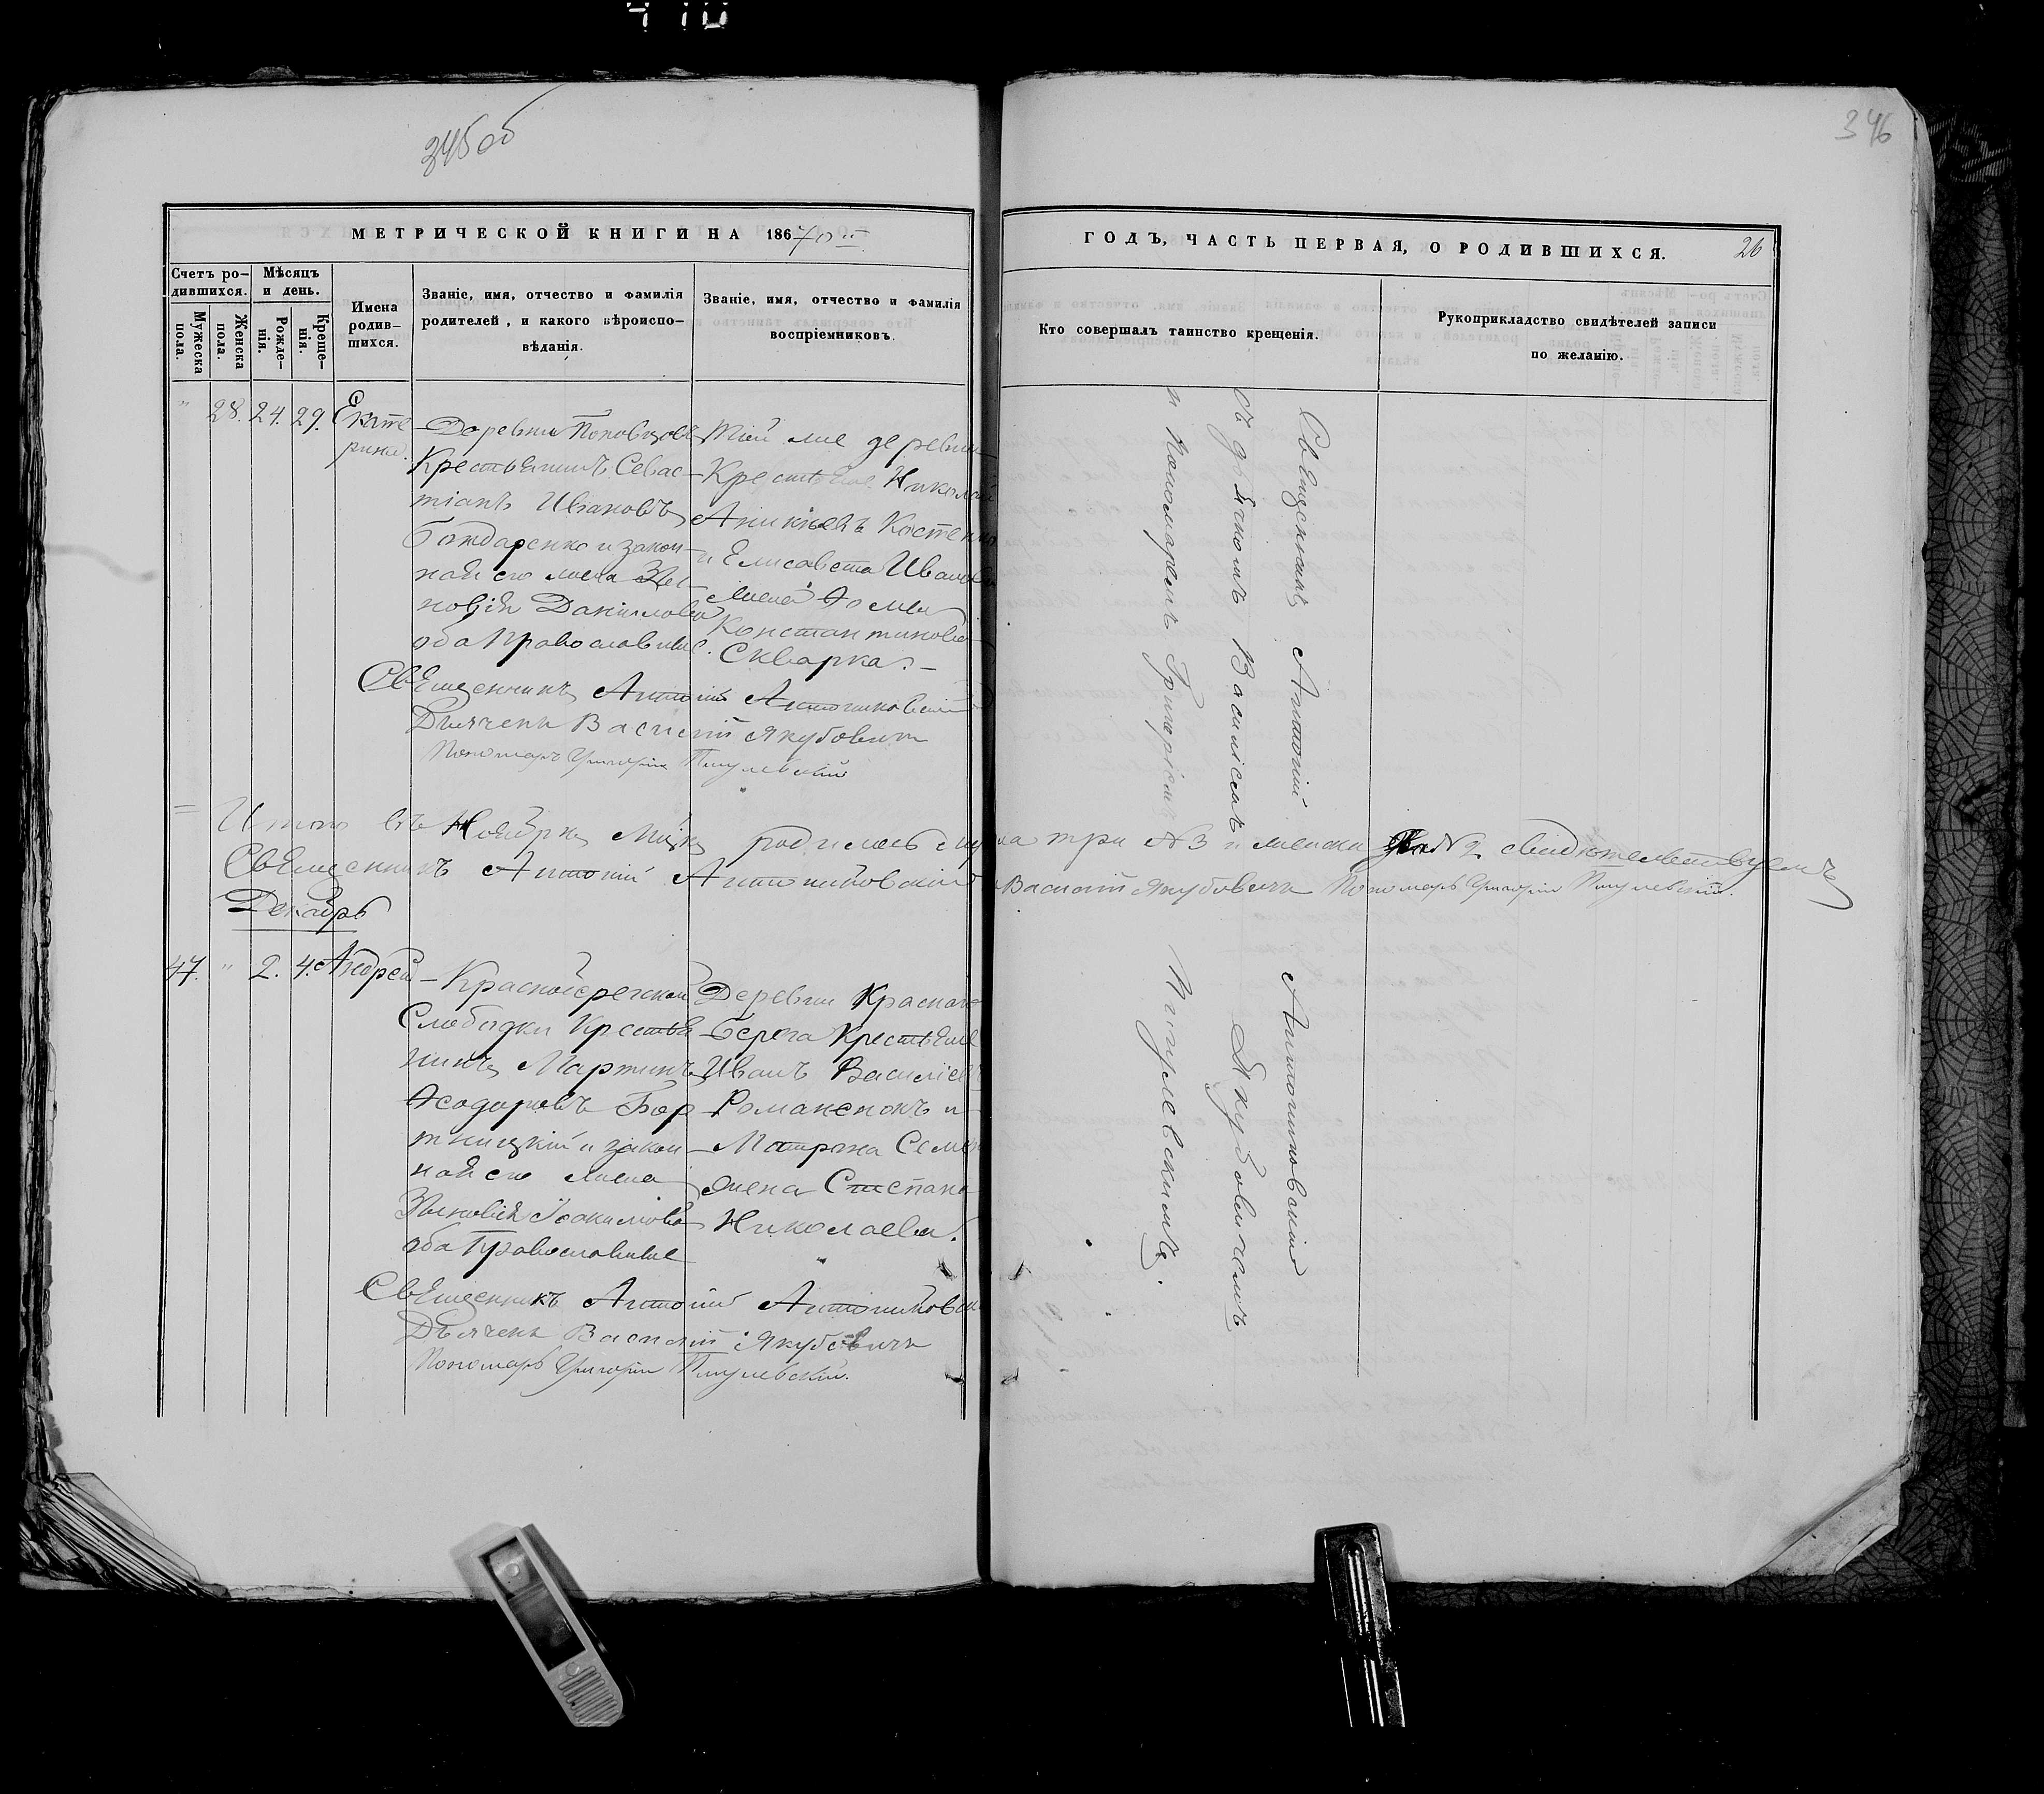 410
345 об
346
МЕТРИЧЕСКОЙ КНИГИ НА 1870й
ГОДЪ, ЧАСТЬ ПЕРВАЯ, О РОДИВШИХСЯ.
26
Счетъ ро-
дившихся.
Мужеска
пола.
Женска
пола.
Мѣсяцъ
и день.
Рожде-
нія.
Креще-
нія.
Имена
родив-
шихся.
Званіе, имя, отчество и фамилія
родителей, и какого вѣроиспо-
вѣданія.
Званіе, имя, отчество и фамилія
воспріемниковъ.
Кто совершалъ таинство крещенія.
Рукоприкладство свидѣтелей записи
по желанію.
" 28. 24. 29. Екате
рина.
Деревни
Крестьянинъ Севас-
тіанъ Ивановъ
Бондаренко и закон-
ная его жена
Данилова
оба православные.
Той же деревни
Крестьяне Николай
Костенко
и Елисавета Иванова
жена Фомы
Константинова
Скварка.
Священникъ Антоній Антониновскій
Дьячекъ Василій Якубовичъ
Пономарь Григорій
Итого въ Ноябрѣ Мцѣ родилось мужа три №3 и женска два №2 свидѣтельствуемъ
Священникъ Антоній Антониновскій Василій Якубовичъ Пономарь Григорій
Декабрь
47. " 2. 4. Андрей
Краснобережской
Слободки Крестья
нинъ Мартинъ
Ѳеодоровъ Бор
тницкій и закон
ная его жена
Зѣновія Іоакимова
оба Православные
Деревни Краснаго
Берега Крестьяне
Иванъ Василіевъ
Романенокъ и
Матрона Семен
жена Степана
Николаева.
Священникъ Антоній Антониновскій
Дьячекъ Василій Якубовичъ
Пономарь Григорій
Священникъ Антоній Антониновскій
съ дьячкомъ Василіемъ Якубовичемъ
и Пономаремъ Григоріемъ